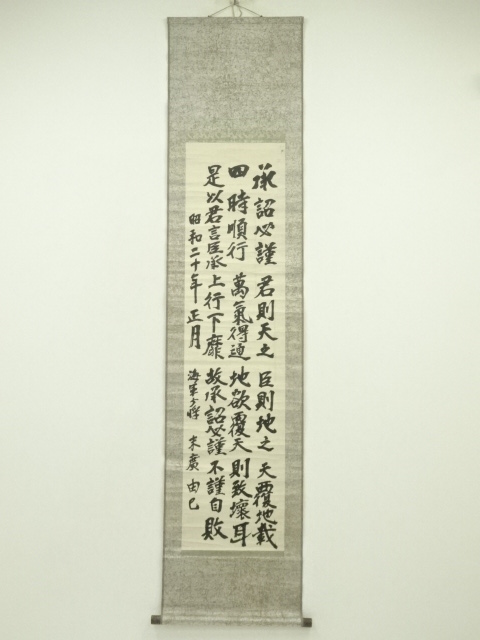 承詔必謹君則天之臣則地之天覆地載
四時順行萬氣得通地欲覆天則致壞耳
是以君言臣承上行下靡故承詔必謹不謹自敗
昭和二十年正月
海軍少将 末廣由己